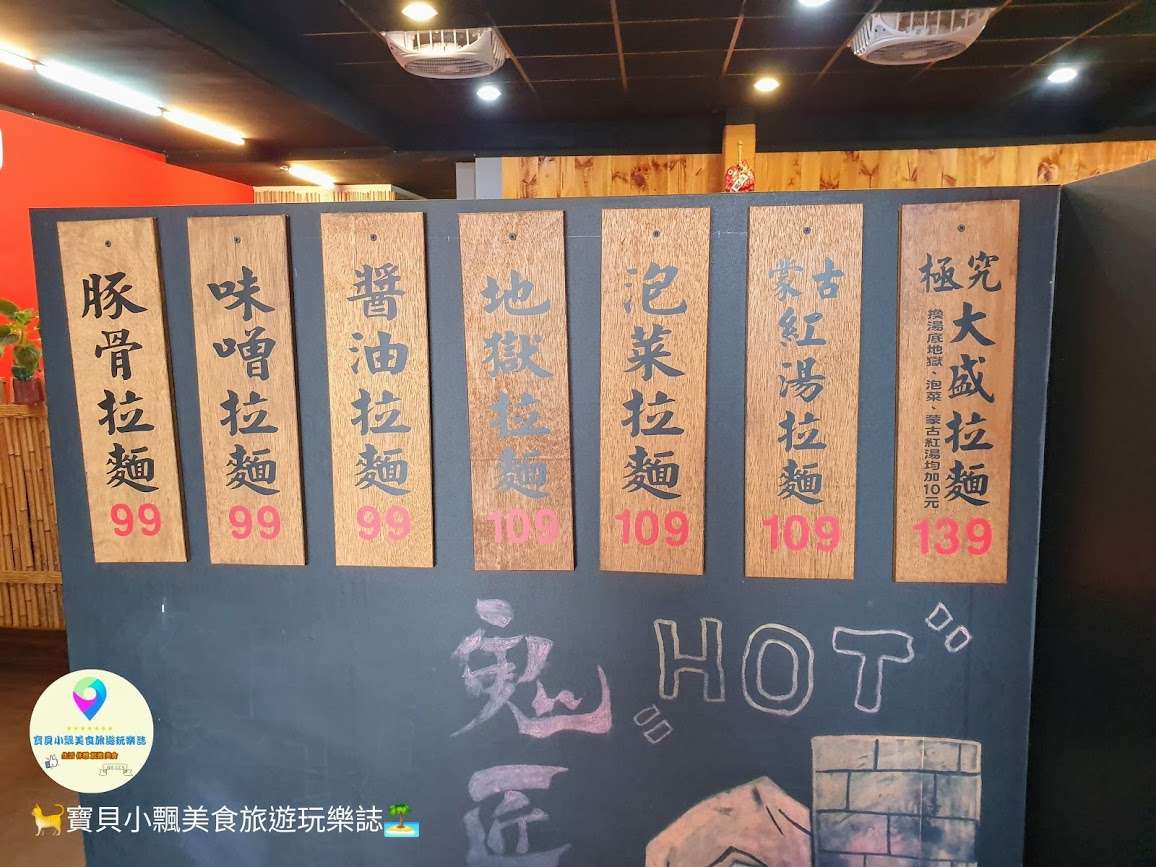 豚骨拉麵
99
味噌拉麵
99
醬油拉麵
99
地獄拉麵
109
泡菜拉麵
109
蒙古
紅湯拉麵
109
極究
大盛拉麵
換湯底地獄、泡菜、蒙古紅湯均加10元
139
鬼匠
HOT
寶貝小飄美食旅遊玩樂誌
寶貝小飄美食旅遊玩樂誌